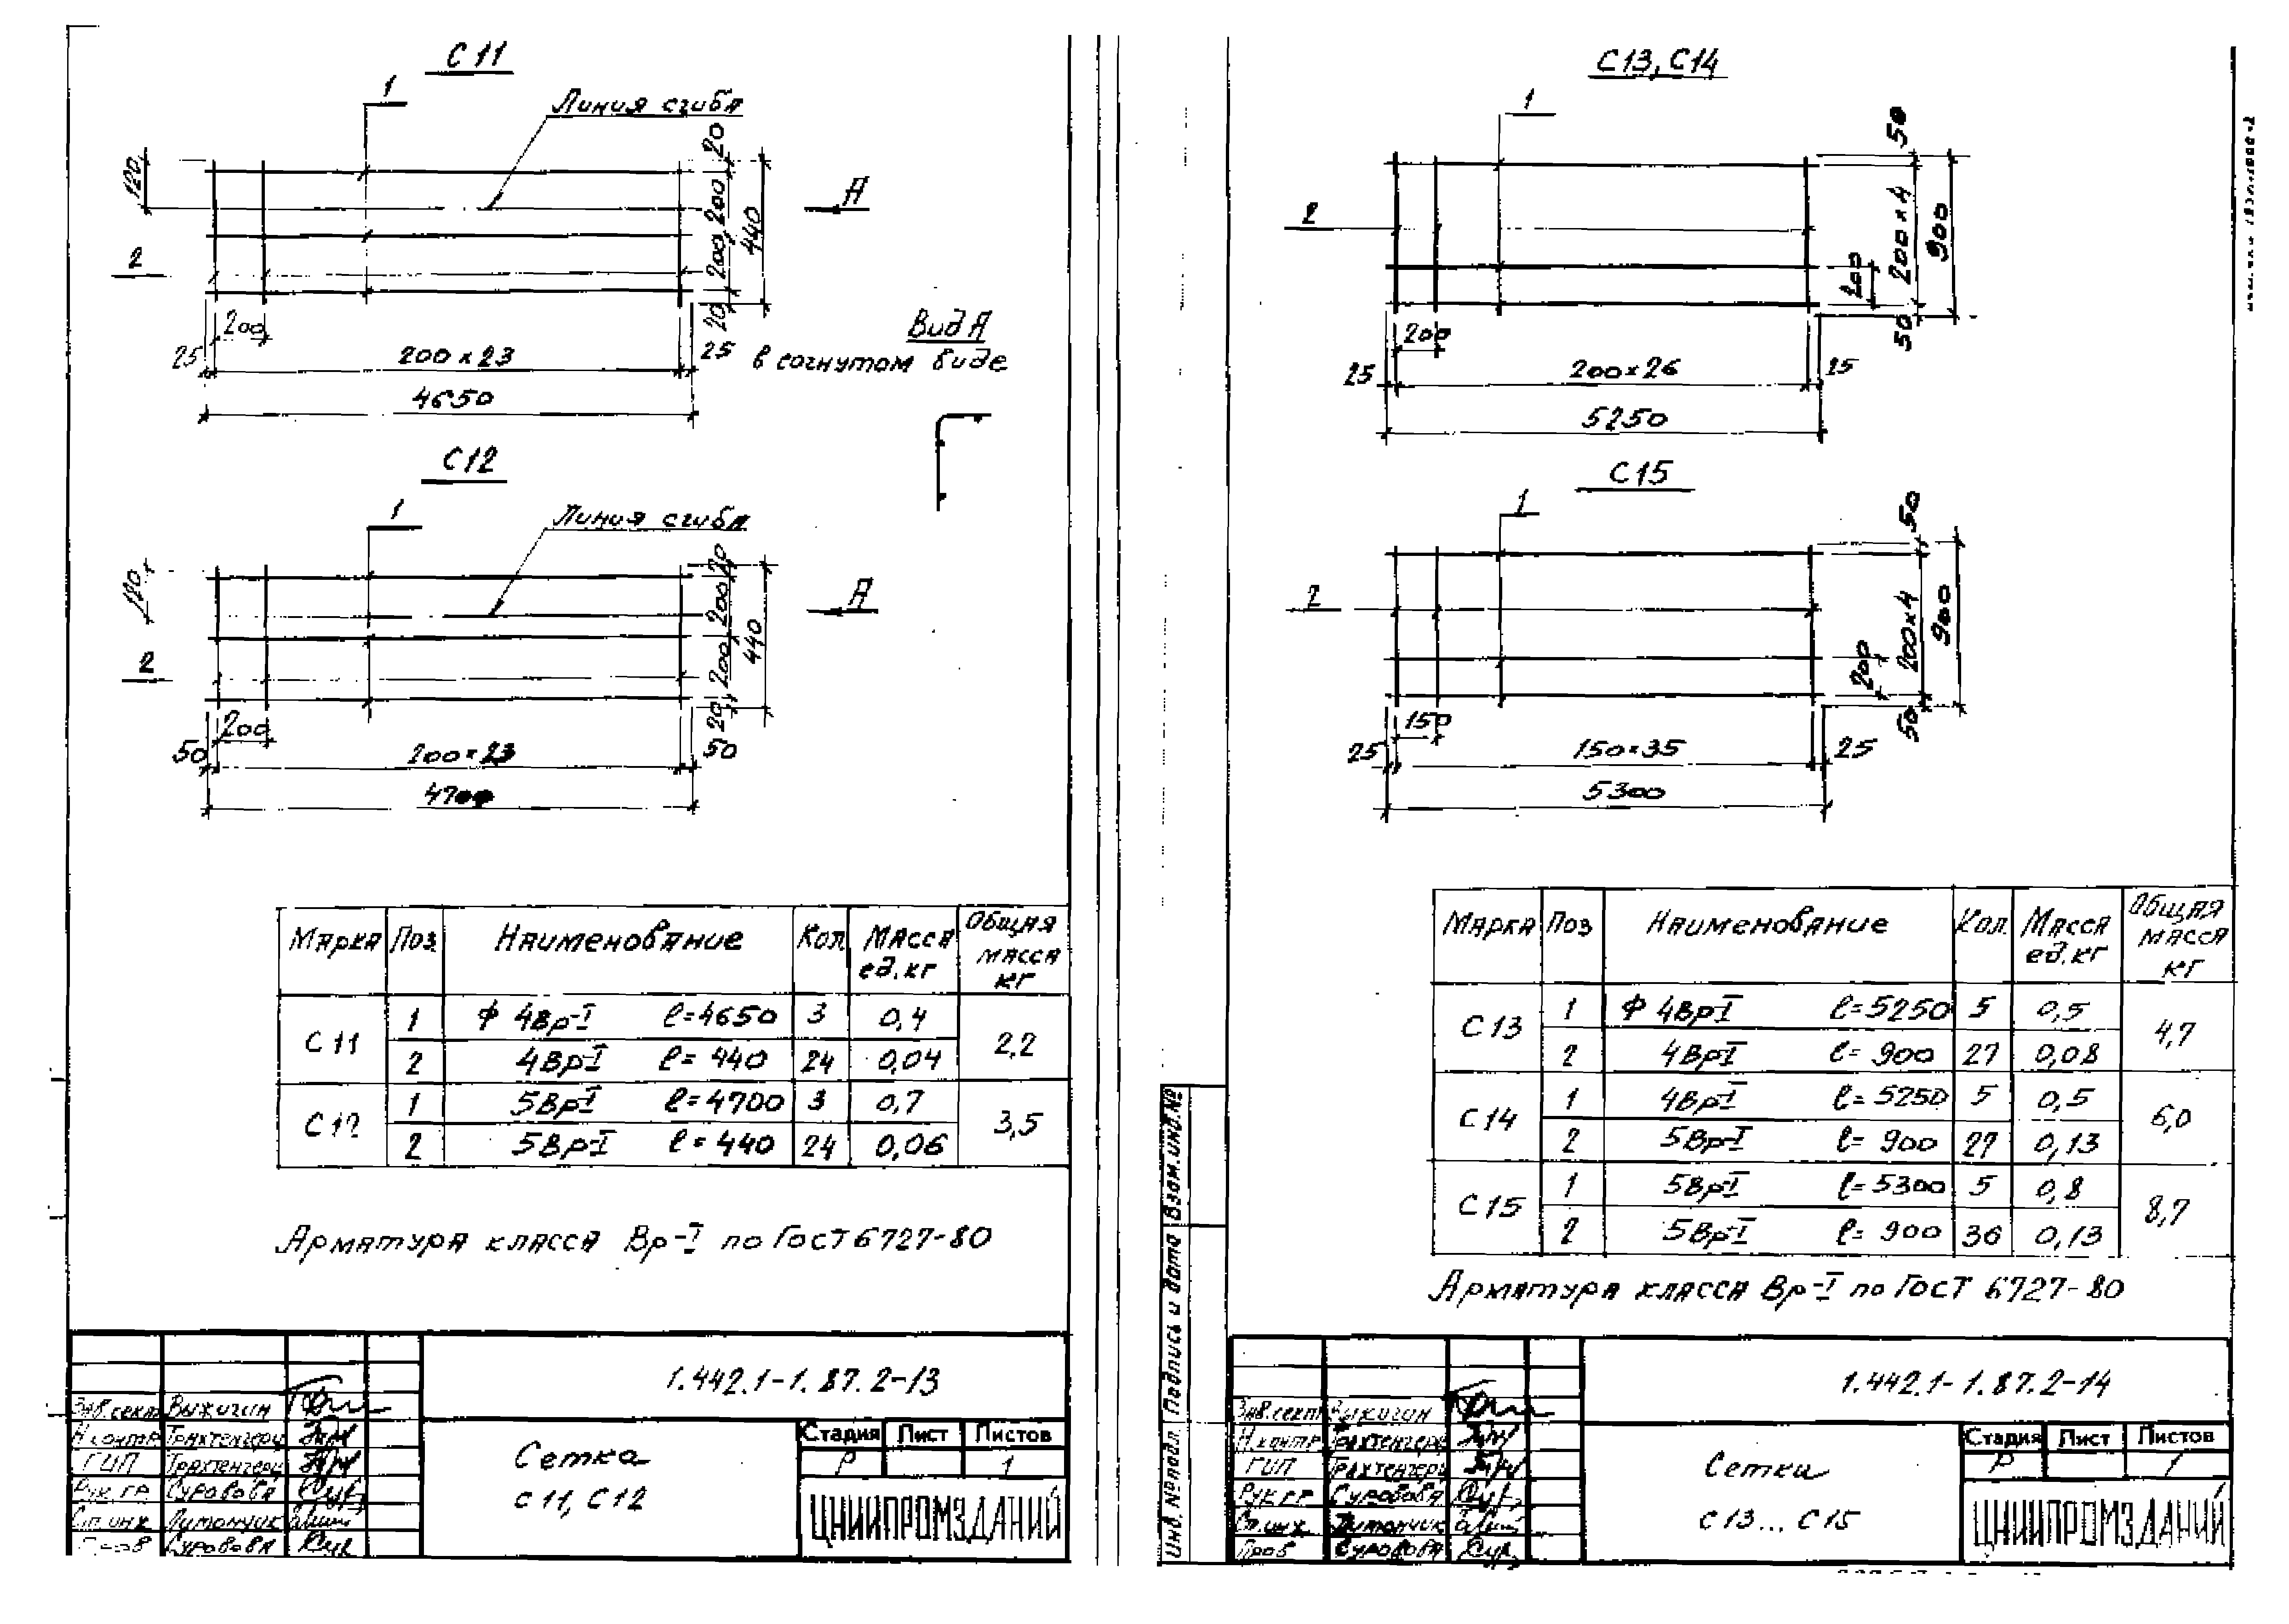 С11
1
Линия сгиба
120
20
200
200
20
440
А
2
200
25
200×23
25
4650
Вид А
в согнутом виде
С12
1
Линия сгиба
120
20
200
200
20
440
А
2
200
50
200×23
50
4700
Марка Поз. Наименование Кол. Масса ед. кг Общая масса кг
С11 1 ф 4Вр-I ℓ=4650 3 0,4 2,2
2 4Вр-I ℓ=440 24 0,04
С12 1 5Вр-I ℓ=4700 3 0,7 3,5
2 5Вр-I ℓ=440 24 0,06
Арматура класса Вр-I по ГОСТ 6727-80
1.442.1-1.87.2-13
Зав.сект. Выжигин
Н.контр Трахтенгерц
ГИП Трахтенгерц
Рук. гр. Суровова
Ст. инж
Суровова
Сетка
С11, С12
Стадия Лист Листов
Р 1
ЦНИИПРОМЗДАНИЙ
С13, С14
1
2
50
200×4
200
50
900
200
25
200×26
25
5250
С15
1
2
50
200×4
200
50
900
150
25
150×35
25
5300
Марка Поз Наименование Кол. Масса ед. кг Общая масса кг
С13 1 ф 4Вр-I ℓ=5250 5 0,5 4,7
2 4Вр-I ℓ=900 27 0,08
С14 1 4Вр-I ℓ=5250 5 0,5 6,0
2 5Вр-I ℓ=900 27 0,13
С15 1 5Вр-I ℓ=5300 5 0,8 8,7
2 5Вр-I ℓ=900 36 0,13
Арматура класса Вр-I по ГОСТ 6727-80
Инв.№подл. Подпись и дата Взам.инв.№
1.442.1-1.87.2-14
Зав.сект. Выжигин
Н.контр Трахтенгерц
ГИП Трахтенгерц
Рук.гр. Суровова
Ст.инж
Пров Суровова
Сетки
С13... С15
Стадия Лист Листов
Р 1
ЦНИИПРОМЗДАНИЙ